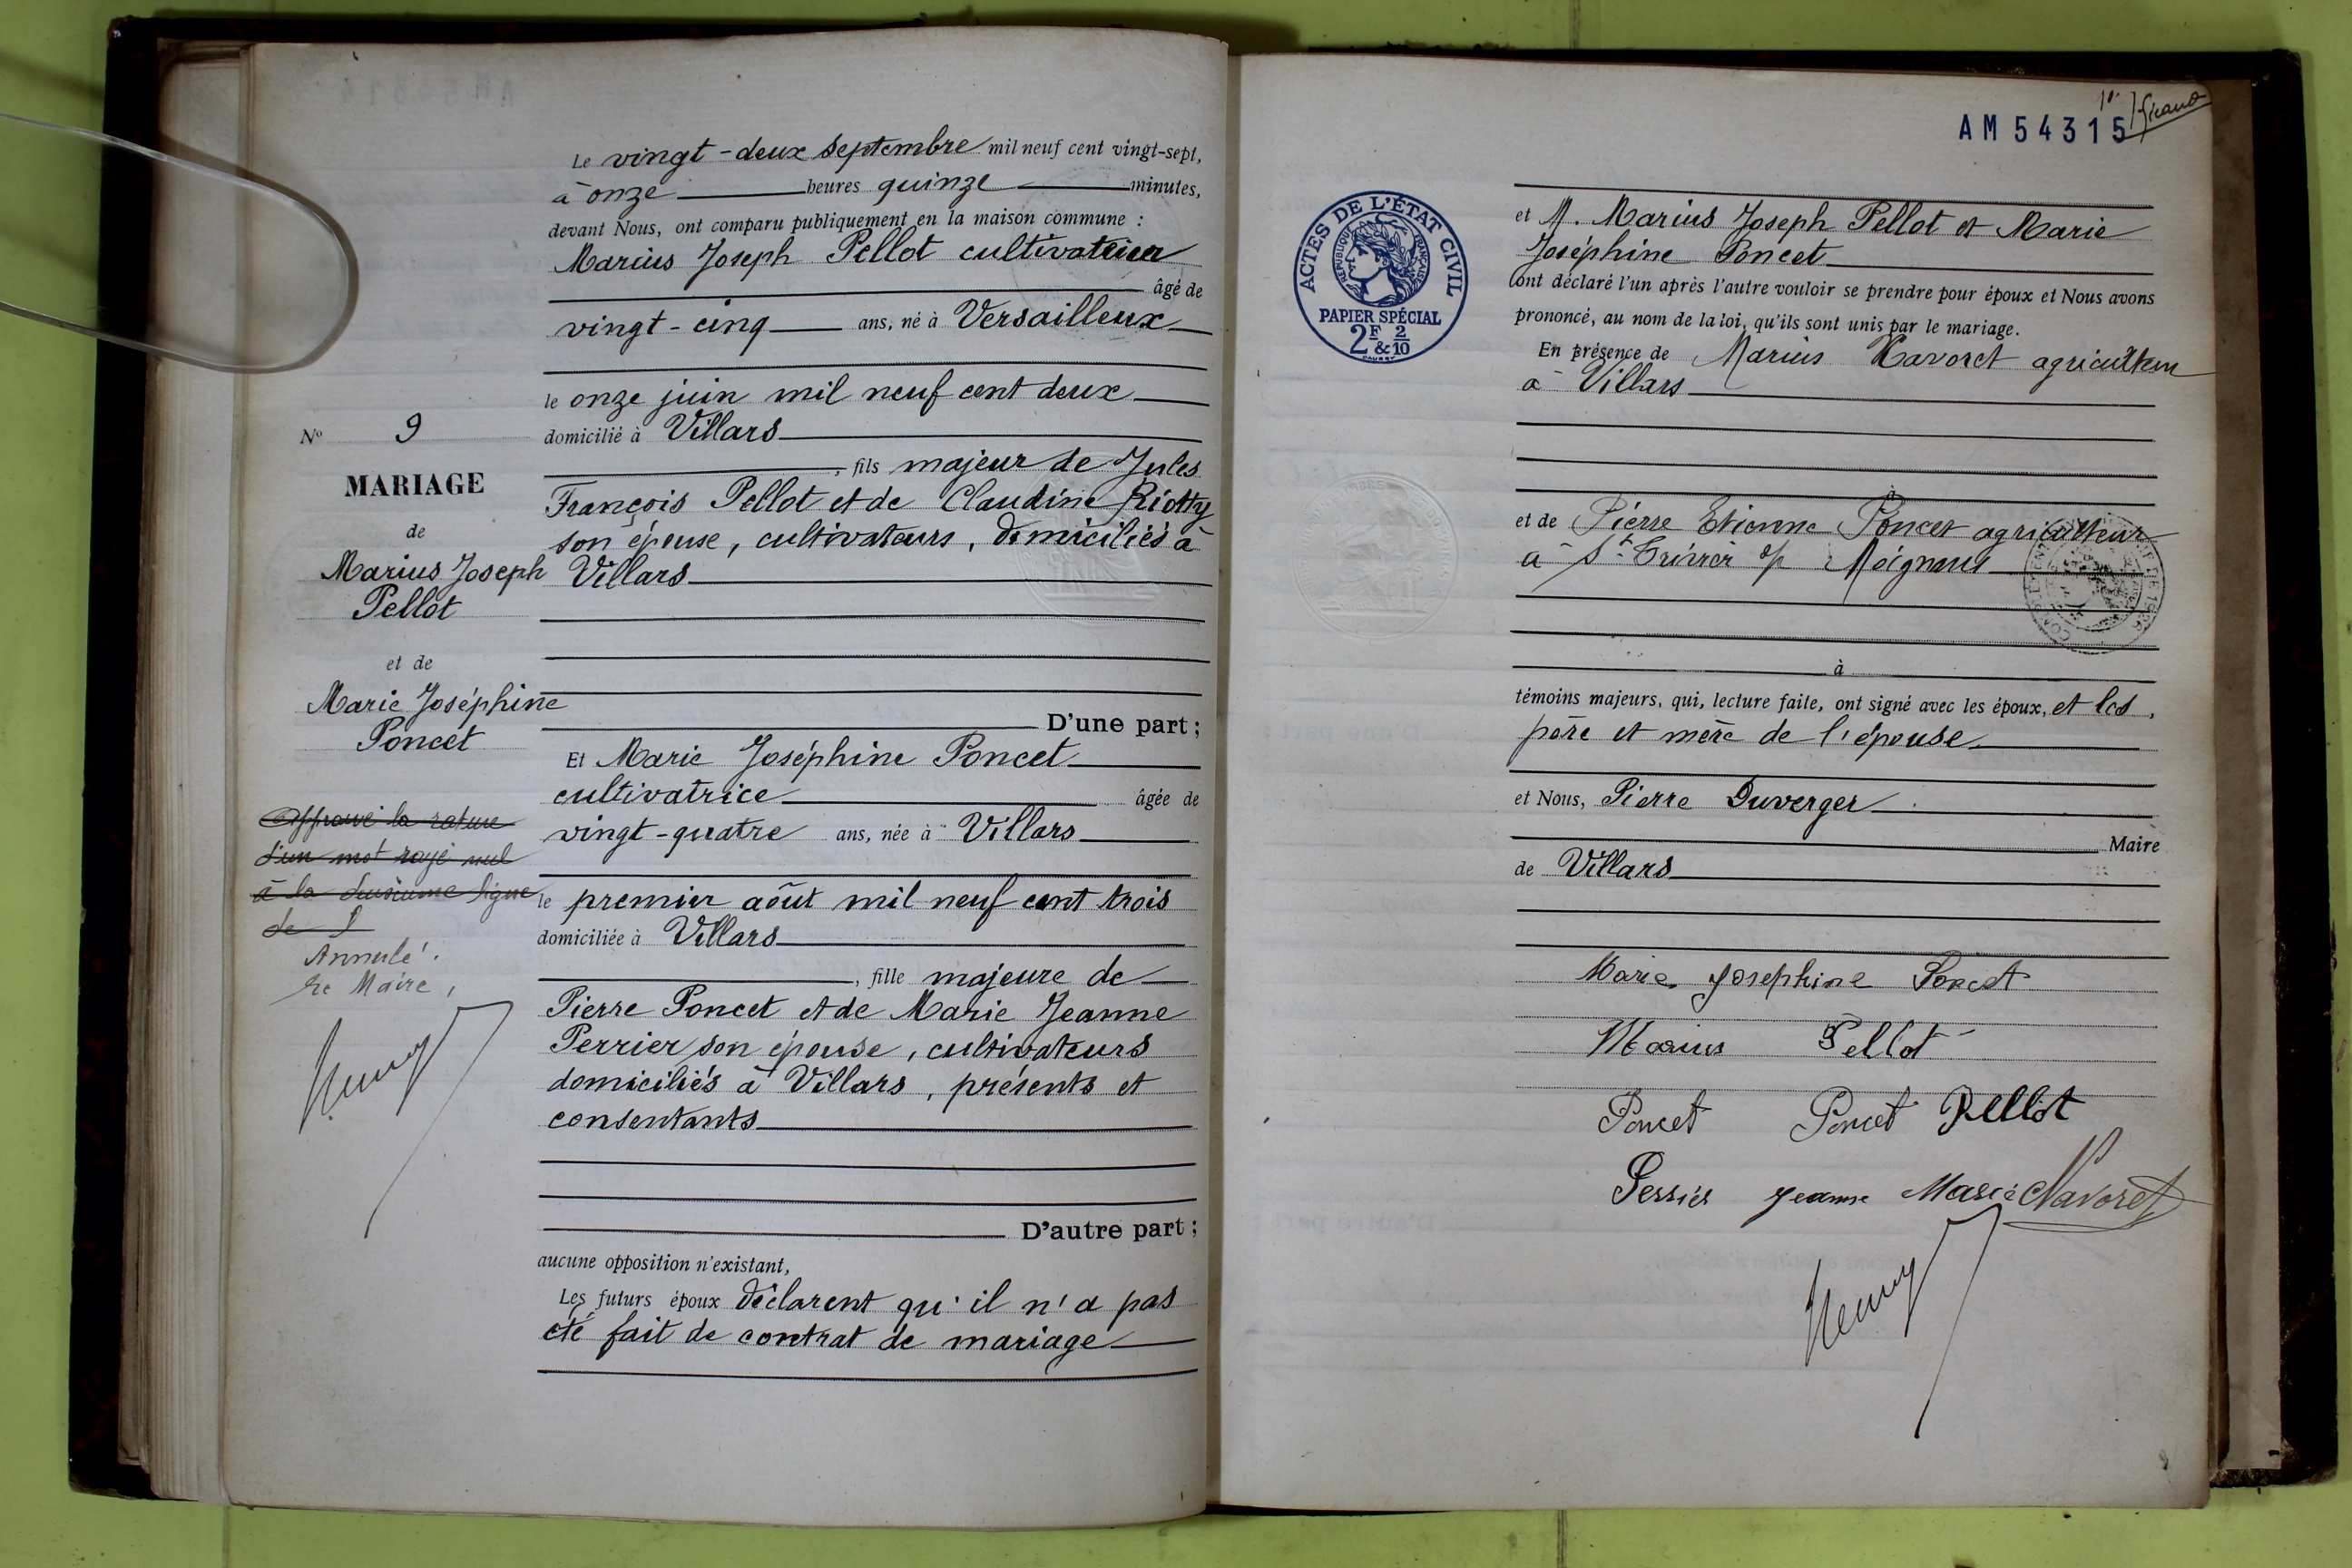 Le vingt-deux septembre mil neuf cent vingt-sept,
à onze heures quinze minutes,
devant Nous, ont comparu publiquement en la maison commune :
Marius Joseph Pellot
âgé de
vingt-cinq ans, né à Versailleux
le onze juin mil neuf cent deux
domicilié à Villars
, fils majeur de Jules
François Pellot et de Claudine Riotty
son épouse, cultivateurs, domiciliés à
Villars
D'une part ;
Et Marie Joséphine Poncet
cultivatrice âgée de
vingt-quatre ans, née à Villars
le premier août mil neuf cent trois
domiciliée à Villars
, fille majeure de
Pierre Poncet et de Marie Jeanne
Perrier son épouse, cultivateurs
domiciliés à Villars, présents et
consentants
D'autre part ;
aucune opposition n'existant,
Les futurs époux déclarent qu'il n'a pas
été fait de contrat de mariage
N° 9
MARIAGE
de
Marius Joseph
Pellot
et de
Marie Joséphine
Poncet
Approuvé la rature
d'un mot rayé nul
à la deuxième ligne
de
Annulé.
Le Maire,
AM 54315
ACTES DE L'ÉTAT CIVIL
RÉPUBLIQUE FRANÇAISE
PAPIER SPÉCIAL
2F & 2/10
et M. Marius Joseph Pellot et Marie
Joséphine Poncet
ont déclaré l'un après l'autre vouloir se prendre pour époux et Nous avons
prononcé, au nom de la loi, qu'ils sont unis par le mariage.
En présence de Marius Navoret agriculteur
à Villars
à
et de Pierre Etienne Poncet agriculteur
à St Trivier s/ Moignans
à
témoins majeurs, qui, lecture faite, ont signé avec les époux, et les
père et mère de l'épouse
et Nous, Pierre Duverger
Maire
de Villars
Marie Josephine Poncet
Marius Pellot
Poncet Poncet Pellot
Perrier Jeanne Marie Navoret